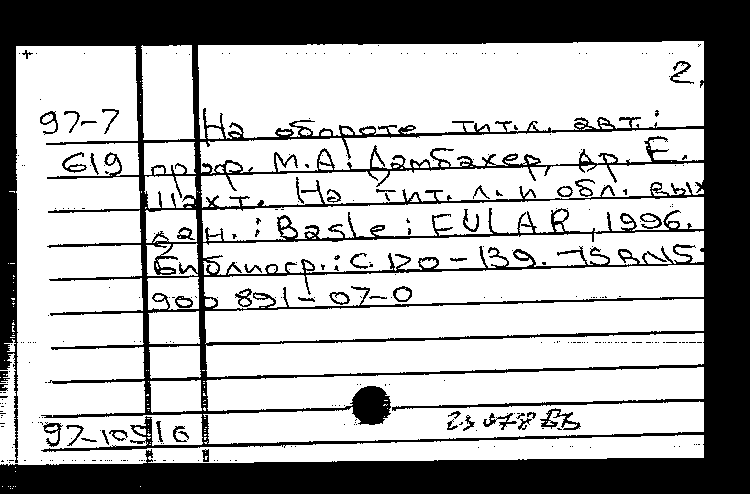 2.
97-7 На обороте тит.л. авт.:
619 проф. М.А. Дамбахер, др. Е.
Шахт. На тит. л. и обл. вых
дан.: Basle: EULAR, 1996.
Библиогр.: с. 120-139. ISBN 5-
900 891-07-0
97-10516